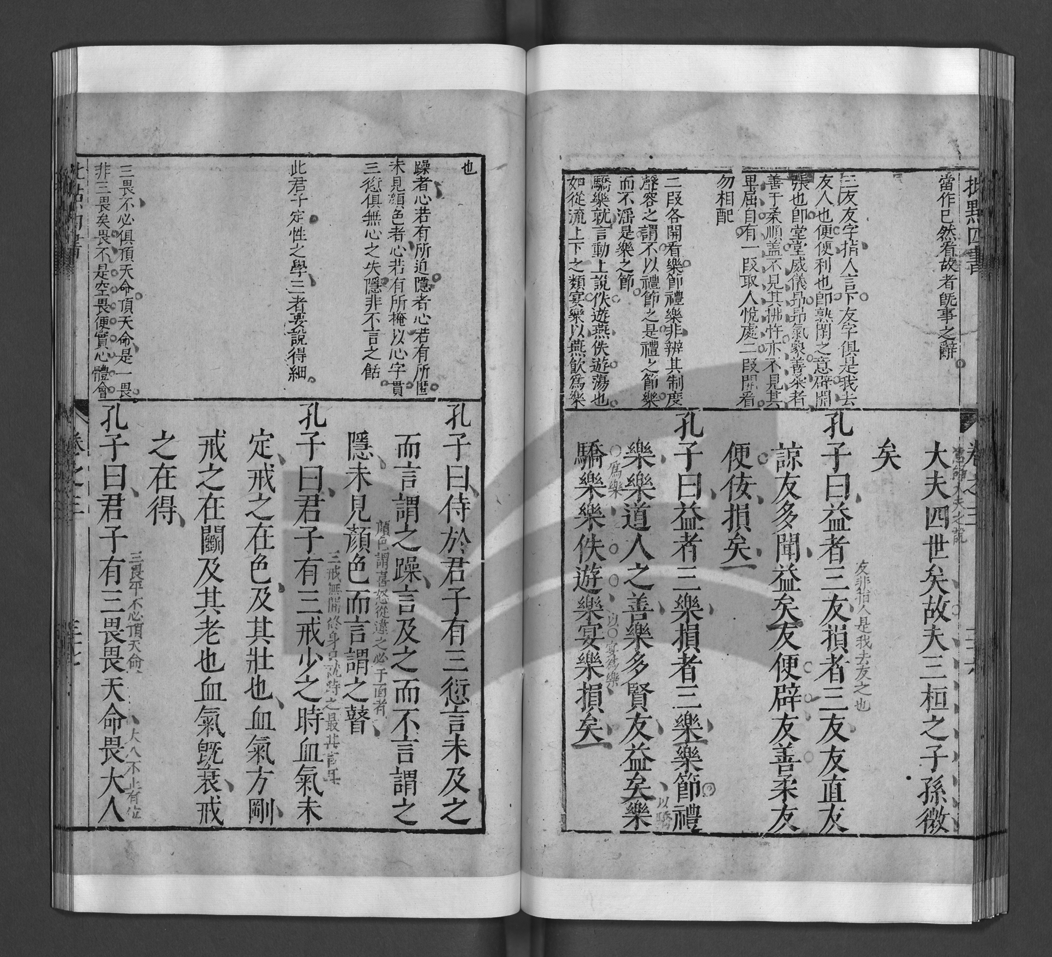 批點四書
當作已然看故者旣事之辭
三友友字指人言下友字俱是我去
友人也便便利也卽熟閑之意辟開
張也卽堂堂威儀昂昂氣象善柔者
善于柔順蓋不見其拂忤亦不見其
里屈自有一段取人悅處二段閒看
勿相配
二段各開看樂節禮樂非辨其制度
聲容之謂不以禮節之是禮之節樂
而不淫是樂之節
驕樂就言動上說佚遊燕佚遊蕩也
如從流上下之類宴樂以燕飲爲樂
卷之三
大夫四世矣故夫三桓之子孫微
矣
孔子曰益者三友損者三友友直友
友非指人是我去友之也
諒友多聞益矣友便辟友善柔友
便佞損矣
孔子曰益者三樂損者三樂樂節禮
樂樂道人之善樂多賢友益矣樂
以驕
爲樂
驕樂樂佚遊樂宴樂損矣
以宴爲樂
也
躁者心若有所迫隱者心若有所匿
未見顏色者心若有所掩以心字貫
三愆俱無心之失隱非不言之餂
此君子定性之學三者要說得細
三畏不必俱頂天命頂天命是一畏
非三畏矣畏不是空畏便實心體會
孔子曰侍於君子有三愆言未及之
而言謂之躁言及之而不言謂之
顏色謂喜怒從違之必于面者
隱未見顏色而言謂之瞽
三戒無閒修身
孔子曰君子有三戒少之時血氣未
定戒之在色及其壯也血氣方剛
戒之在鬭及其老也血氣旣衰戒
之在得
三畏平不必頂天命
大人不止有位
孔子曰君子有三畏畏天命畏大人
卷之三